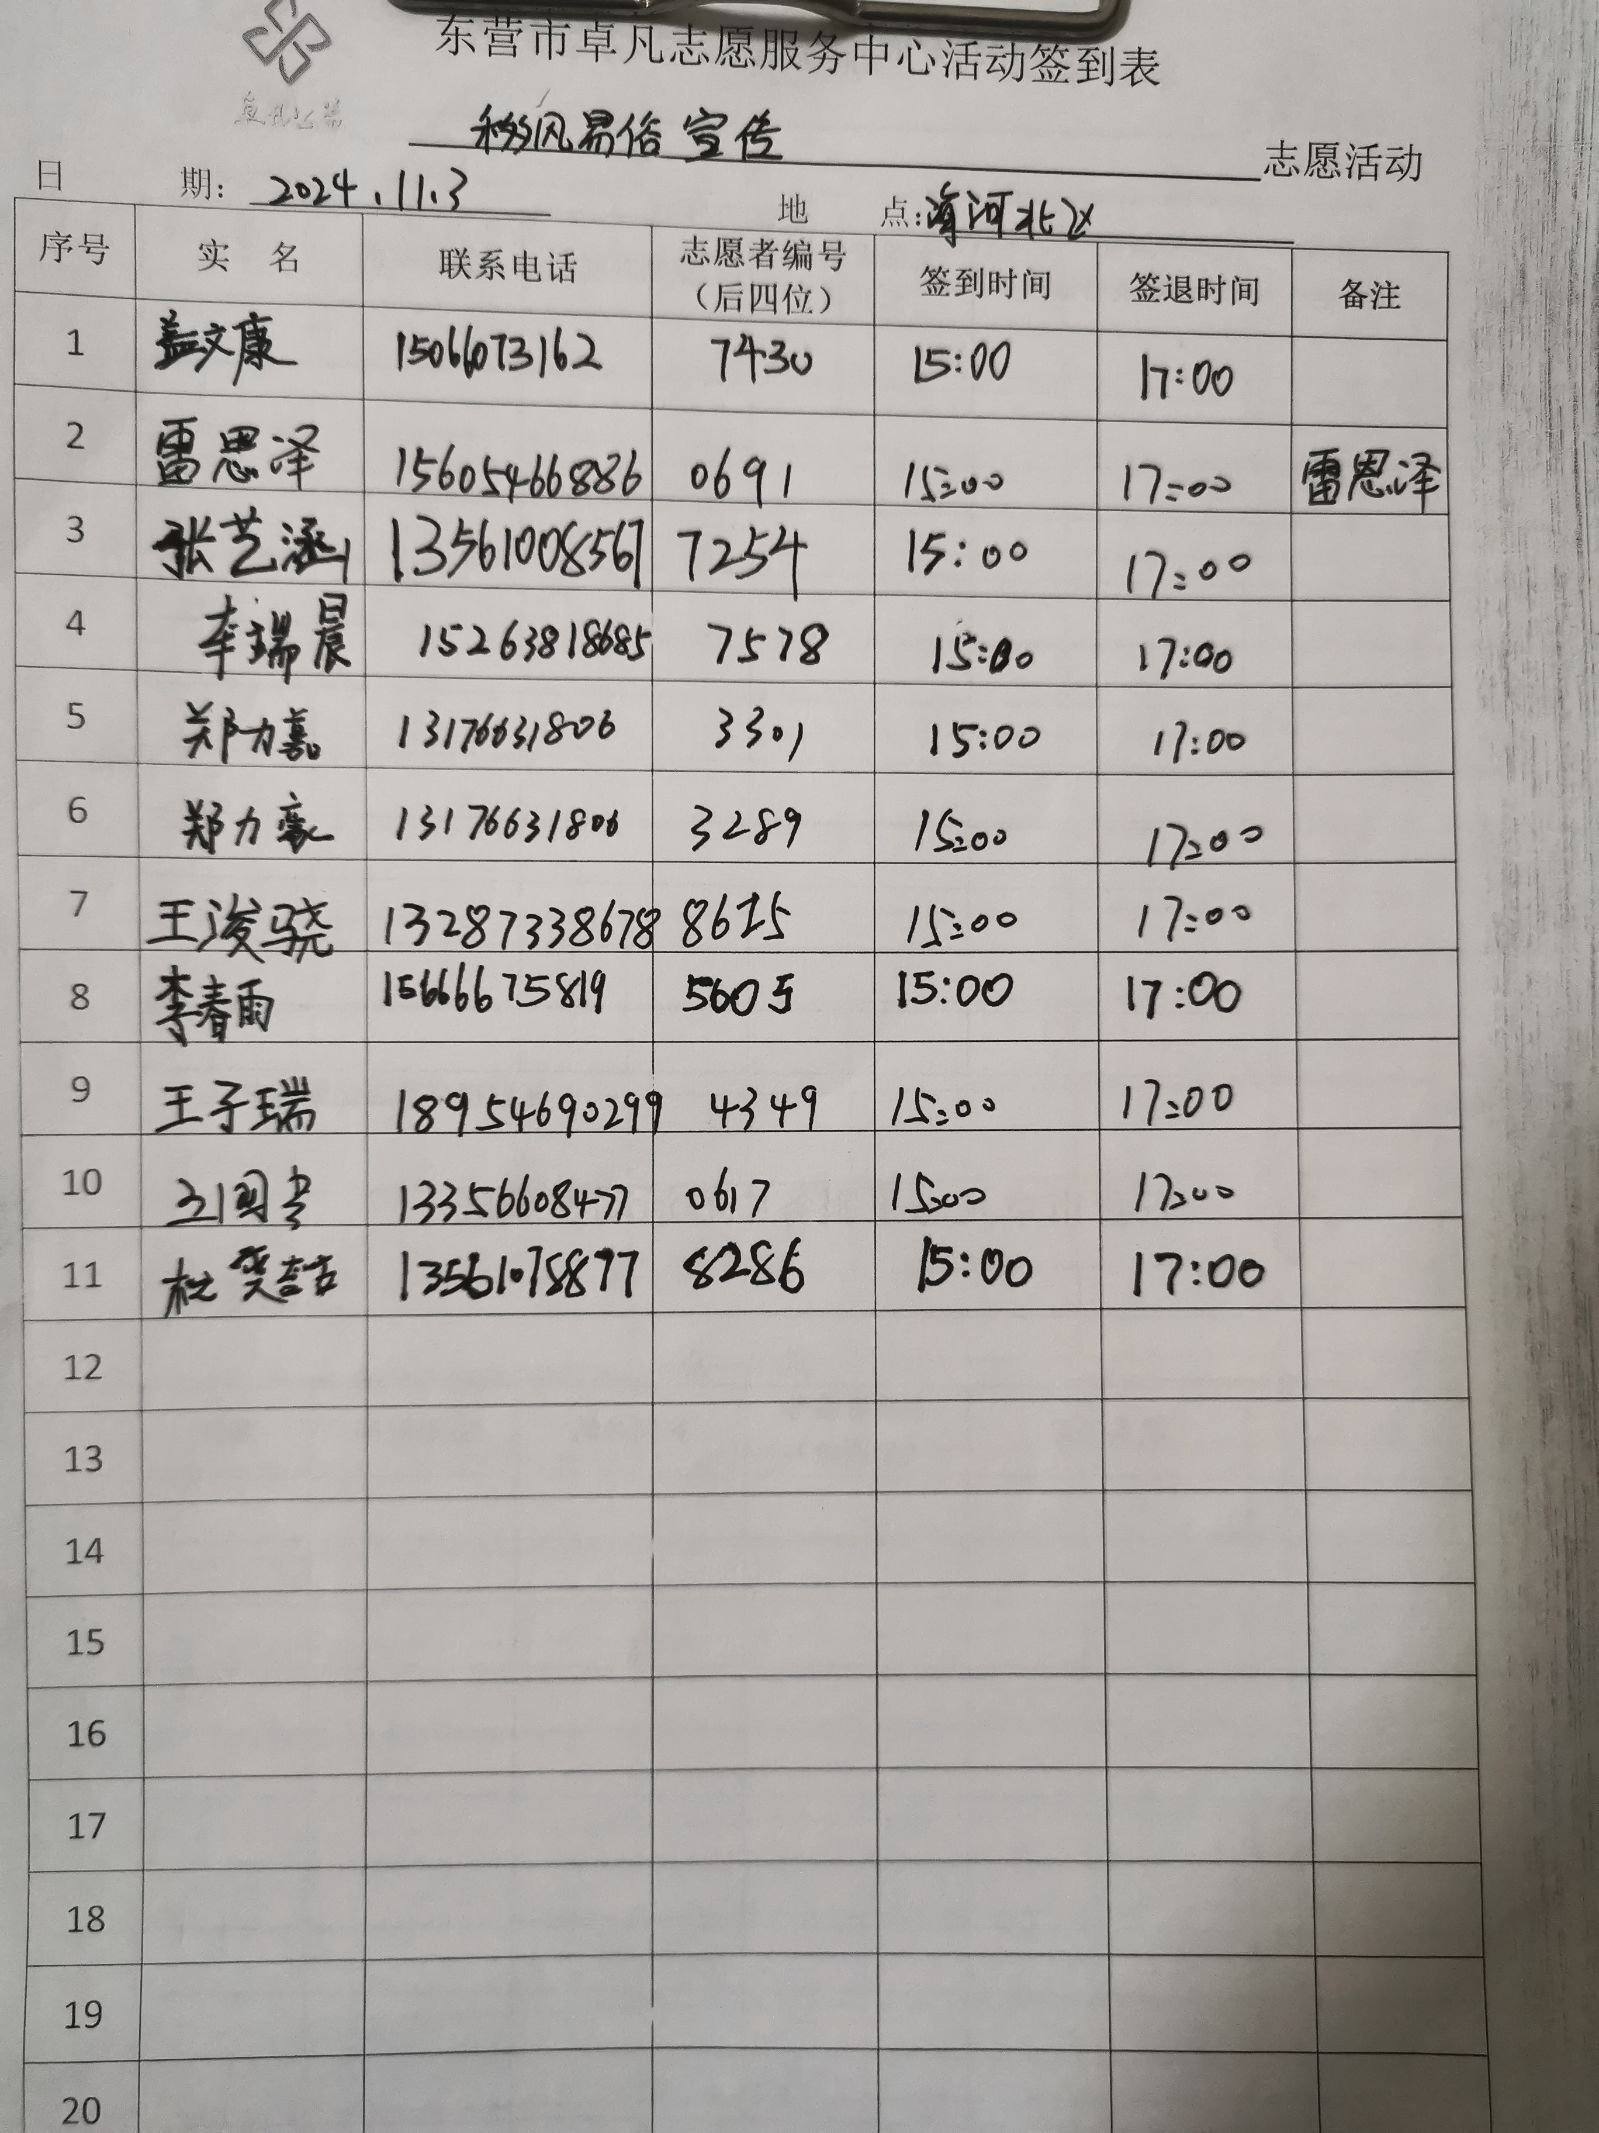 东营市卓凡志愿服务中心活动签到表
卓凡公益
移风易俗宣传 志愿活动
日 期: 2024.11.3 地 点: 河北区
序号 实 名 联系电话 志愿者编号（后四位） 签到时间 签退时间 备注
1 盖文康 15066073162 7430 15:00 17:00
2 雷思泽 15605466886 0691 15:00 17:00 雷恩泽
3 张艺涵 13561008567 7254 15:00 17:00
4 李瑞晨 15263818685 7578 15:00 17:00
5 郑力嘉 13176631806 3301 15:00 17:00
6 郑力豪 13176631806 3289 15:00 17:00
7 王浚骁 13287338678 8615 15:00 17:00
8 李春雨 15666675819 5605 15:00 17:00
9 王子瑞 18954690299 4349 15:00 17:00
10 13356608477 0617 15:00 17:00
11 13561078877 8286 15:00 17:00
12
13
14
15
16
17
18
19
20